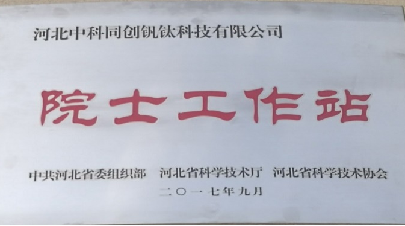 河北中科同创钒钛科技有限公司
院士工作站
中共河北省委组织部 河北省科学技术厅 河北省科学技术协会
二〇一七年九月